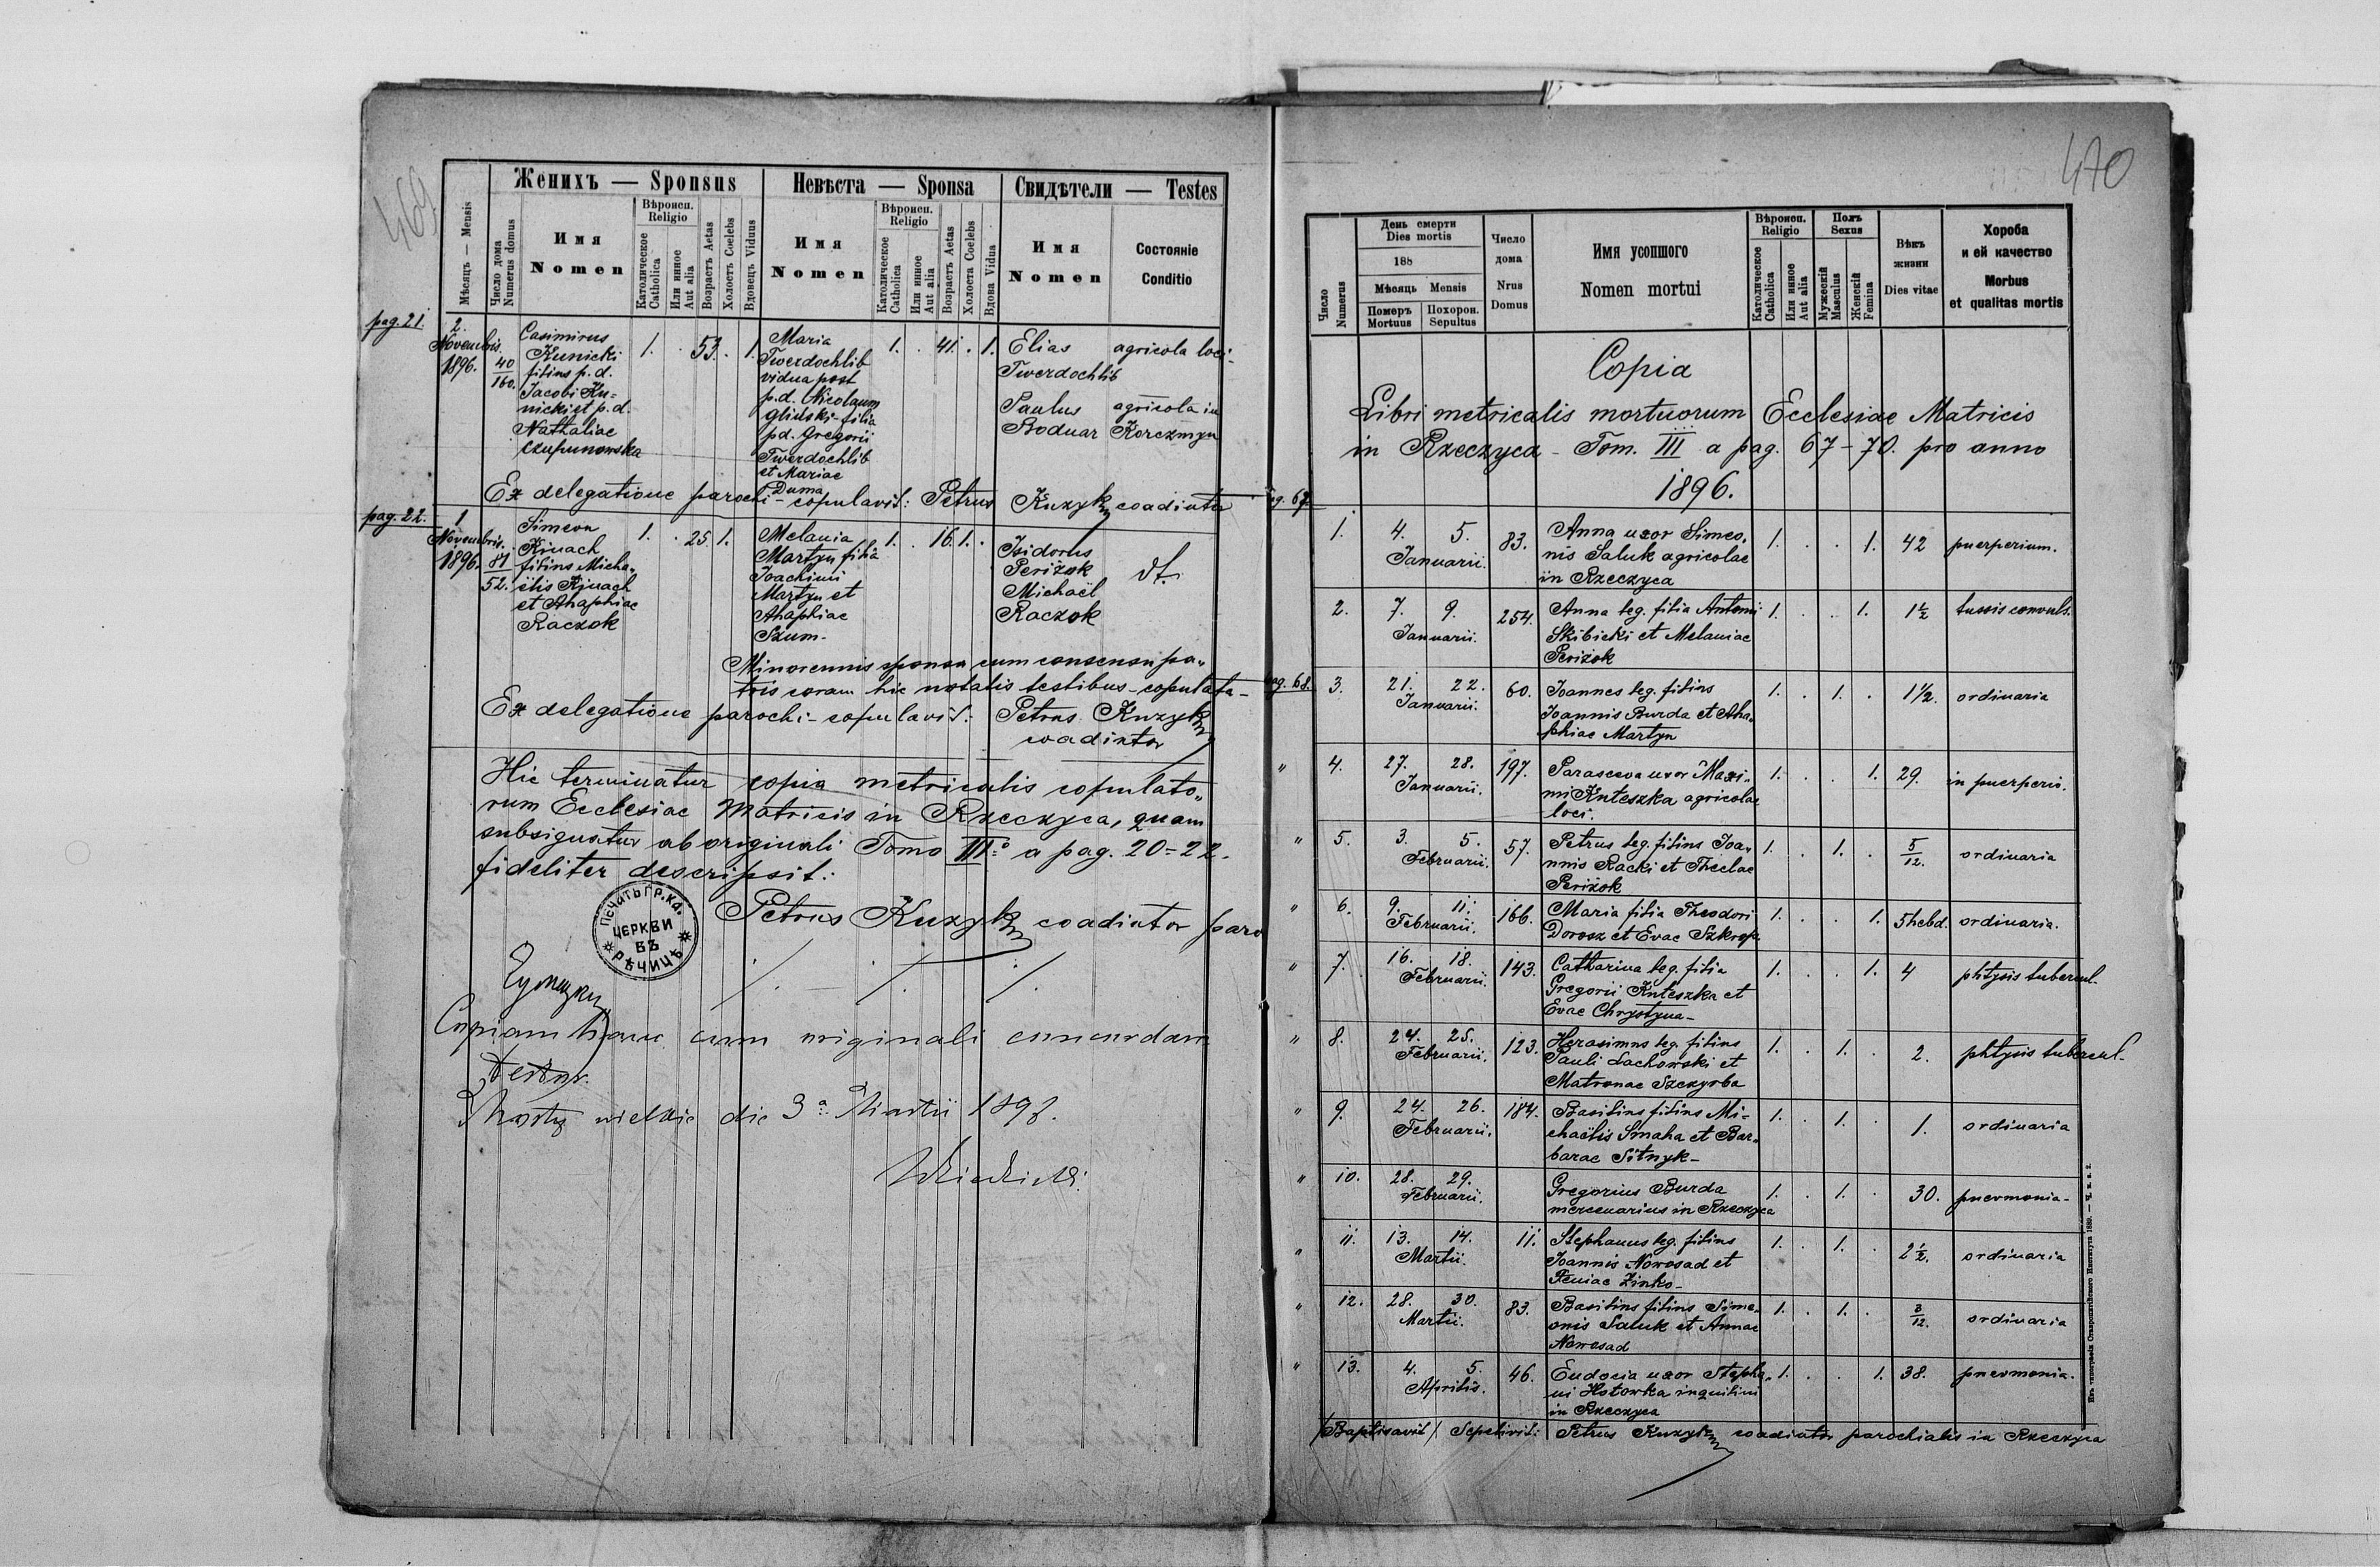 469
Женихъ — Sponsus
Невѣста — Sponsa
Свидѣтели — Testes
Мѣсяцъ — Mensis
Число дома
Numerus domus
Имя
Nomen
Вѣроисп.
Religio
Католическое
Catholica
Или инное
Aut alia
Возрастъ Aetas
Холостъ Coelebs
Вдовецъ Viduus
Имя
Nomen
Вѣроисп.
Religio
Католическое
Catholica
Или инное
Aut alia
Возрастъ Aetas
Холоста Coelebs
Вдова Vidua
Имя
Nomen
Состояніе
Conditio
pag. 21.
2.
Novembris.
1896.
40
160.
Casimirus
Kunicki
filius p. d.
Jacobi Ku=
nicki et p. d.
Nathaliae
1. . 53. . 1.
Maria
Twerdochlib
vidua post
p.d. Nicolaum
gliński - filia
pd. Gregorii
Twerdochlib
et Mariae
Duma
1. . 41. . 1.
Elias
Twerdochlib
agricola loci -
Paulus
Boduar
agricola in
Korczmyn
Ex delegatione parochi - copulavit: Petrus Kuzyk coadiutor
pag. 22.
1
Novembris.
1896.
81
52.
Simeon
Kinach
filius Micha„
ëlis Kinach
et Ahaphiae
Raczok
1. . 25. 1.
Melania
Martyn filia
Joachimi
Martyn et
Ahaphiae
Szum.
1. . 16. 1. .
Isidorus
Periżok
Michaël
Raczok
dt.
Minorennis sponsa cum consensu pa„
tris coram hic notatis testibus - copulata -
Ex delegatione parochi - copulavit: Petrus Kuzyk
coadiutor
Hic terminatur copia metricalis copulato„
rum Ecclesiae Matricis in Rzeczyca, quam
subsignatus ab originali Tomo III:o a pag. 20=22.
fideliter descripsit:
Petrus Kuzyk coadiutor paro
ПЕЧАТЬ ГР. КА.
ЦЕРКВИ
ВЪ
РѢЧИЦѢ
Copiam hanc cum originali concordare
testor.
die 3a Martii 1897.
470
Число
Numerus
День смерти
Dies mortis
188
Мѣсяць Mensis
Померъ
Mortuus
Похорон.
Sepultus
Число
дома
Nrus
Domus
Имя усопшого
Nomen mortui
Вѣроисп.
Religio
Католическое
Catholica
Или инное
Aut alia
Полъ
Sexus
Мужескій
Masculus
Женскій
Femina
Вѣкъ
жизни
Dies vitae
Хороба
и ей качество
Morbus
et qualitas mortis
Copia
Libri metricalis mortuorum Ecclesiae Matricis
in Rzeczyca - Tom. III a pag. 67-70. pro anno
1896.
ag. 67.
1. 4. 5. Januarii. 83.
Anna uxor Simeo„
nis Saluk agricolae
in Rzeczyca
1. . . 1. 42 puerperium.
2. 7. 9. Januarii. 254.
Anna leg. filia Antonii
Skibicki et Melaniae
Periżok
1. . . 1. 1½ tussis convuls.
ag. 68.
3. 21. 22. Januarii. 60.
Joannes leg. filius
Joannis Burda et Aha„
phiae Martyn
1. . 1. . 1½. ordinaria
" 4. 27. 28. Januarii. 197.
Parasceva uxor Maxi„
mi Kuteszka agricolae
loci.
1. . . 1. 29. in puerperio.
" 5. 3. 5. Februarii. 57.
Petrus leg. filius Joa„
nnis Racki et Theclae
Periżok
1. . 1. . 5/12. ordinaria
" 6. 9. 11. Februarii. 166.
Maria filia Theodori
Dorosz et Evae Szkrop.
1. . . 1. 5 hebd. ordinaria.
" 7. 16. 18. Februarii. 143.
Catharina leg. filia
Gregorii Kuteszka et
Evae Chrystyna -
1. . . 1. 4 phtysis tubercul.
" 8. 24. 25. Februarii. 123.
Herasimus leg. filius
Pauli Lachowski et
Matronae Szczyrba
1. . 1. . 2. phtysis tubercul.
" 9. 24. 26. Februarii. 184.
Basilius filius Mi„
chaëlis Smaha et Bar„
barae Sitnyk -
1. . 1. . 1. ordinaria
" 10. 28. 29. Februarii.
Gregorius Burda
mercenarius in Rzeczyca
1. . 1. . 30. pneumonia -
" 11. 13. 14. Martii. 11.
Stephanus leg. filius
Joannis Nowosad et
Feniae Zinko -
1. . 1. . 2½. ordinaria
" 12. 28. 30. Martii. 83.
Basilius filius Sime„
onis Saluk et Annae
Nowosad
1. . 1. . 3/12. ordinaria
" 13. 4. 5. Aprilis. 46.
Eudocia uxor Stepha„
ni Hotowka inquilini
in Rzeczyca
1. . . 1. 38. pneumonia.
/Baptisavit/ Sepelivit: Petrus Kuzyk coadiutor parochialis in Rzeczyca
Изъ типографіи Ставропигійского Института 1889. — Ч. и. в. з.